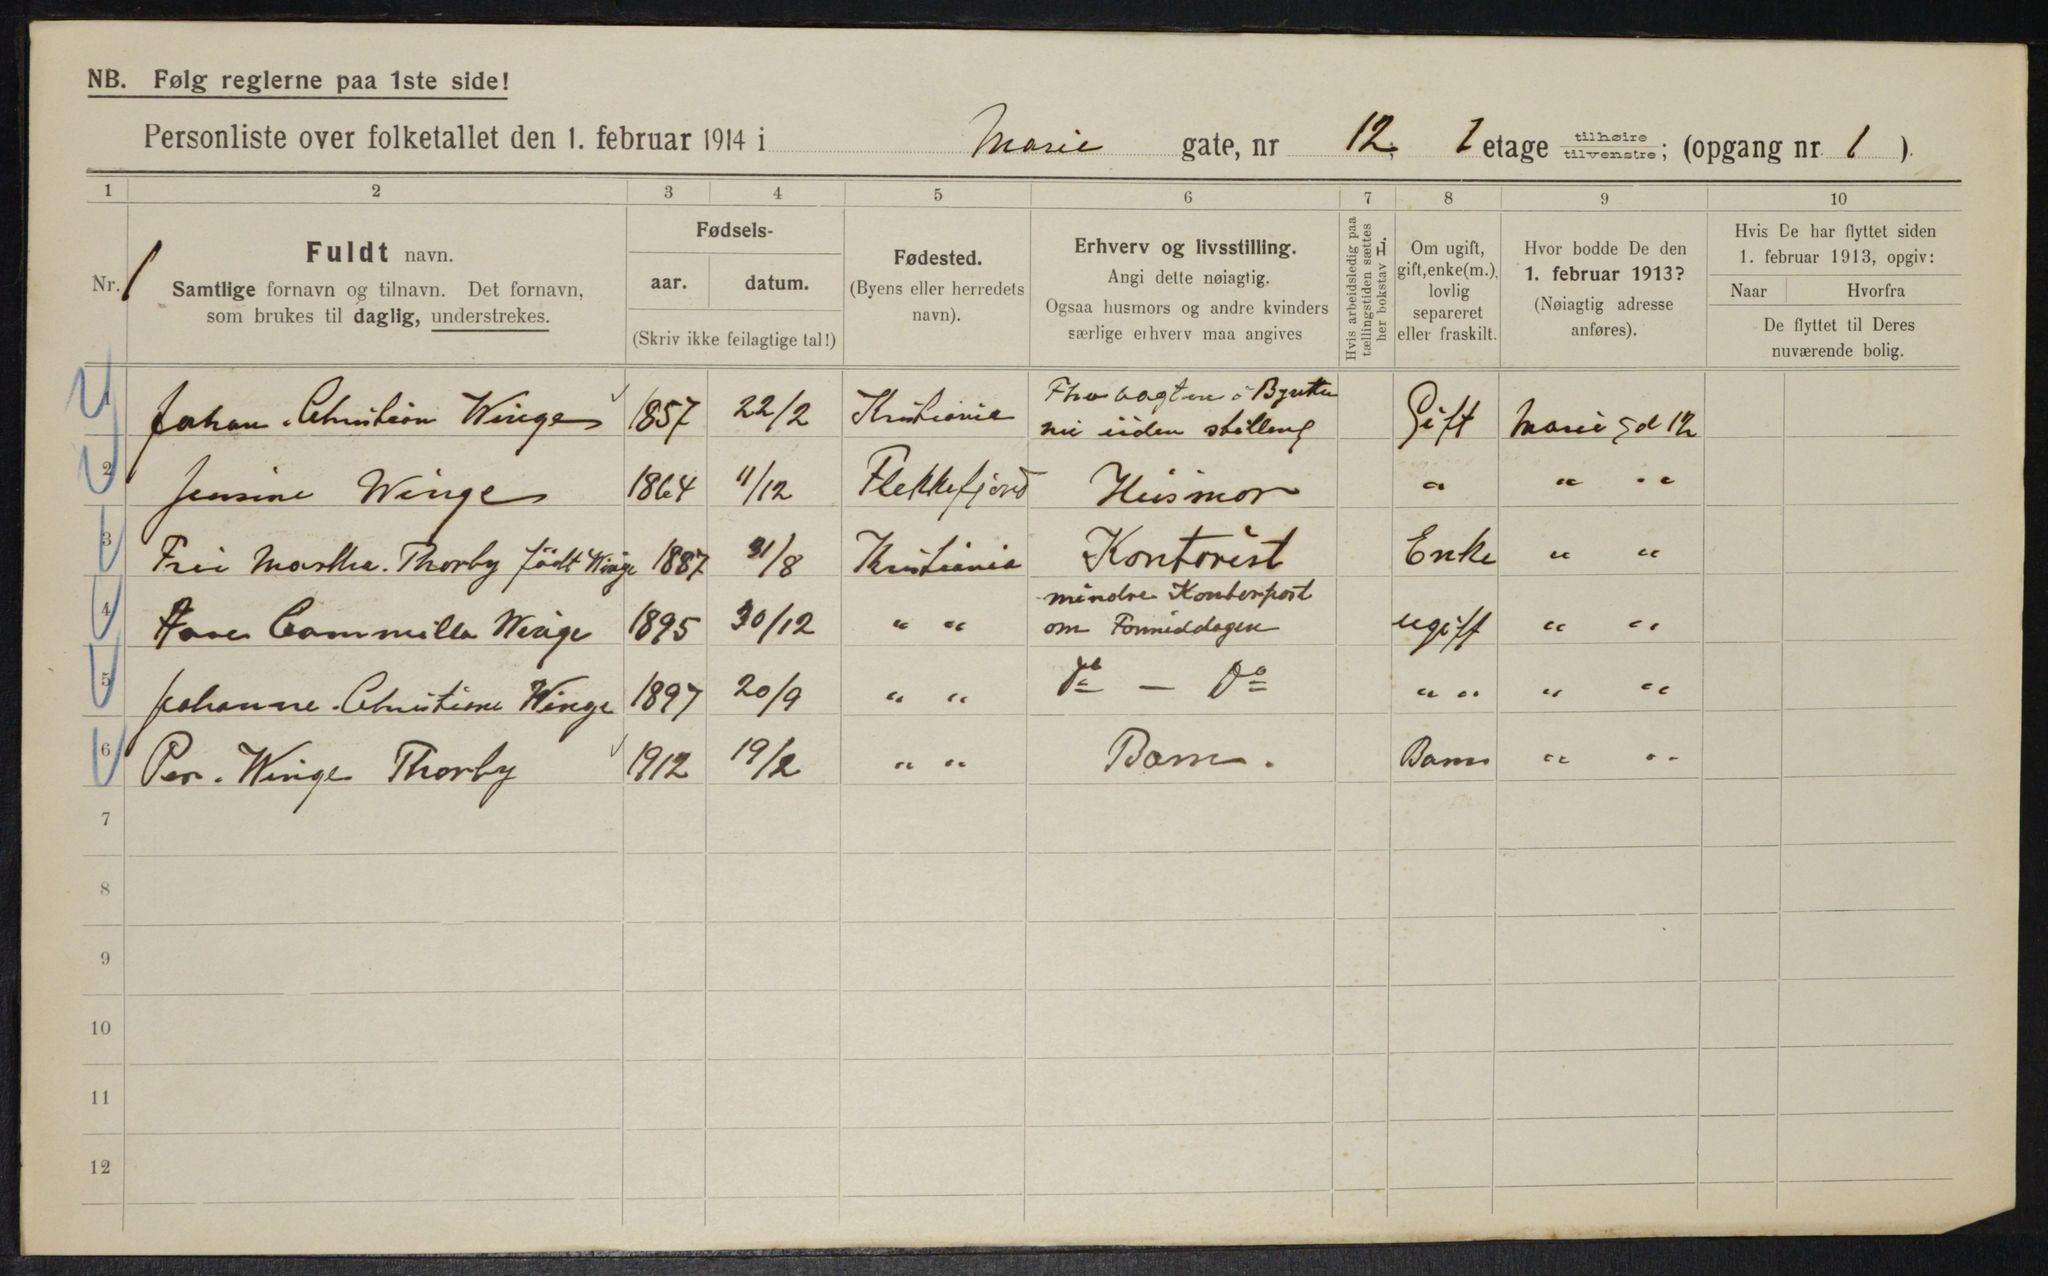 NB. Følg reglerne paa 1ste side!
Personliste over folketallet den 1. februar 1914 i Marie gate, nr 12, 1 etage tilhøire tilvenstre; (opgang nr 1 ).
1 2 3 4 5 6 7 8 9 10
Nr. 1
Fuldt navn.
Samtlige fornavn og tilnavn. Det fornavn,
som brukes til daglig, understrekes.
Fødsels-
aar. datum.
(Skriv ikke feilagtige tal!)
Fødested.
(Byens eller herredets
navn).
Erhverv og livsstilling.
Angi dette nøiagtig.
Ogsaa husmors og andre kvinders
særlige erhverv maa angives
Hvis arbeidsledig paa
tællingstiden sættes
her bokstav L.
Om ugift,
gift, enke(m.),
lovlig
separeret
eller fraskilt.
Hvor bodde De den
1. februar 1913?
(Nøiagtig adresse
anføres).
Hvis De har flyttet siden
1. februar 1913, opgiv:
Naar Hvorfra
De flyttet til Deres
nuværende bolig.
1 Johan. Christian Winge 1857 22/2 Kristiania stilling Gift Marie gd 12
2 Jensine Winge 1864 11/12 Flekkefjord Husmor " " "
3 Frue Martha. Thorby født Winge 1887 31/8 Kristiania Kontorist Enke " "
4 Cammilla Winge 1895 30/12 " " mindre Kontorpost
om Formiddagen ugift " "
5 Johanne. Christiane Winge 1897 20/9 " " do — Do " " " "
6 Per. Winge Thorby 1912 19/2 " " Barn. Barn " "
7
8
9
10
11
12